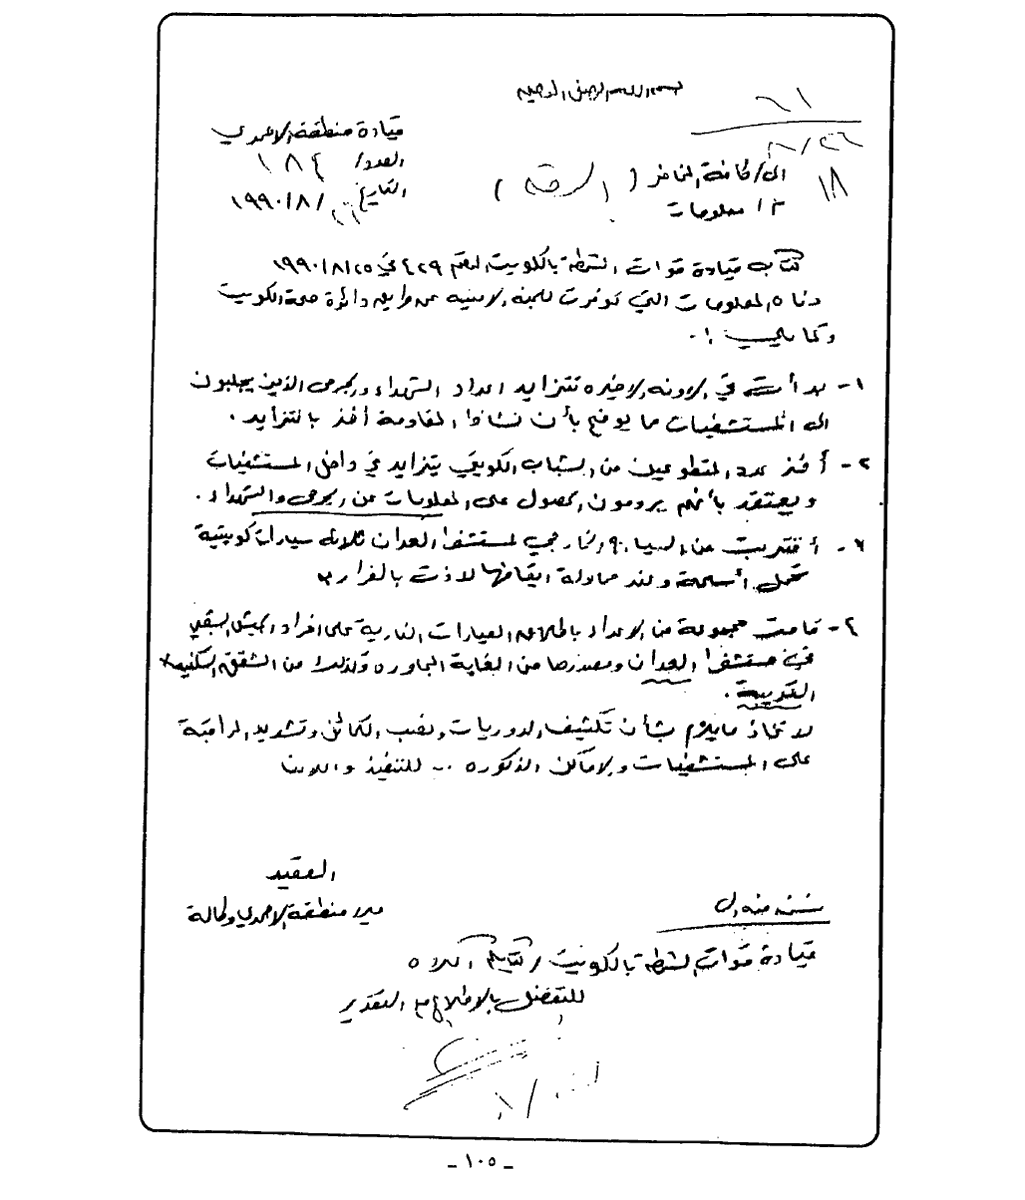 بسم الله الرحمن الرحيم
قيادة منطقة الاحمدي
العدد/ ١٨٤
التاريخ / ٨/ ١٩٩٠
٢٦/٨
١٨
الى/ كافة المخافر ( الرقة )
م/ معلومات
كتاب قيادة قوات الشرطة بالكويت المرقم ٤٢٩ في ١٩٩٠/٨/٢٥
ادناه المعلومات التي توفرت للجنة الامنية عن طريق دائرة صحة الكويت
وكما يلي :.
١- بدأت في الاونه الاخيره تتزايد اعداد الشهداء والجرحى الذين يجلبون
الى المستشفيات مما يوضح بأن نشاط المقاومة أخذ بالتزايد .
٢- أخذ عدد المتطوعين من الشباب الكويتي يتزايد في داخل المستشفيات
ويعتقد بأنهم يرومون الحصول على المعلومات عن الجرحى والشهداء .
٣- أقتربت من السياج الخارجي لمستشفى العدان ثلاثة سيارات كويتية
تحمل أسلحة وعند محاولة ايقافها لاذت بالفرار
٤- قامت مجموعة من الاعداء باطلاق العيارات النارية على افراد الجيش الشعبي
في مستشفى العدان ومصدرها من الغابة المجاوره وكذلك من الشقق السكنية
القريبة .
لاتخاذ مايلزم بشأن تكثيف الدوريات ونصب الكمائن وتشديد المراقبة
على المستشفيات والاماكن المذكوره .. للتنفيذ
العقيد
مدير منطقة الاحمدي وكالة
نسخه منه الى
قيادة قوات الشرطة بالكويت / كتابكم اعلاه
للتفضل بالاطلاع مع التقدير
- ١٠٥ -